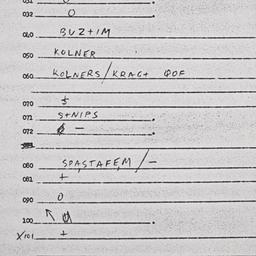 032 0 .
040 BUZ+IM
050 KOLNER
060 KOLNERS/KRAG+ QOF
070 5
071 S+NIPS .
072 ϕ - .
080 SPASTAFEM/-
081 + .
090 0
100 .
X101 +